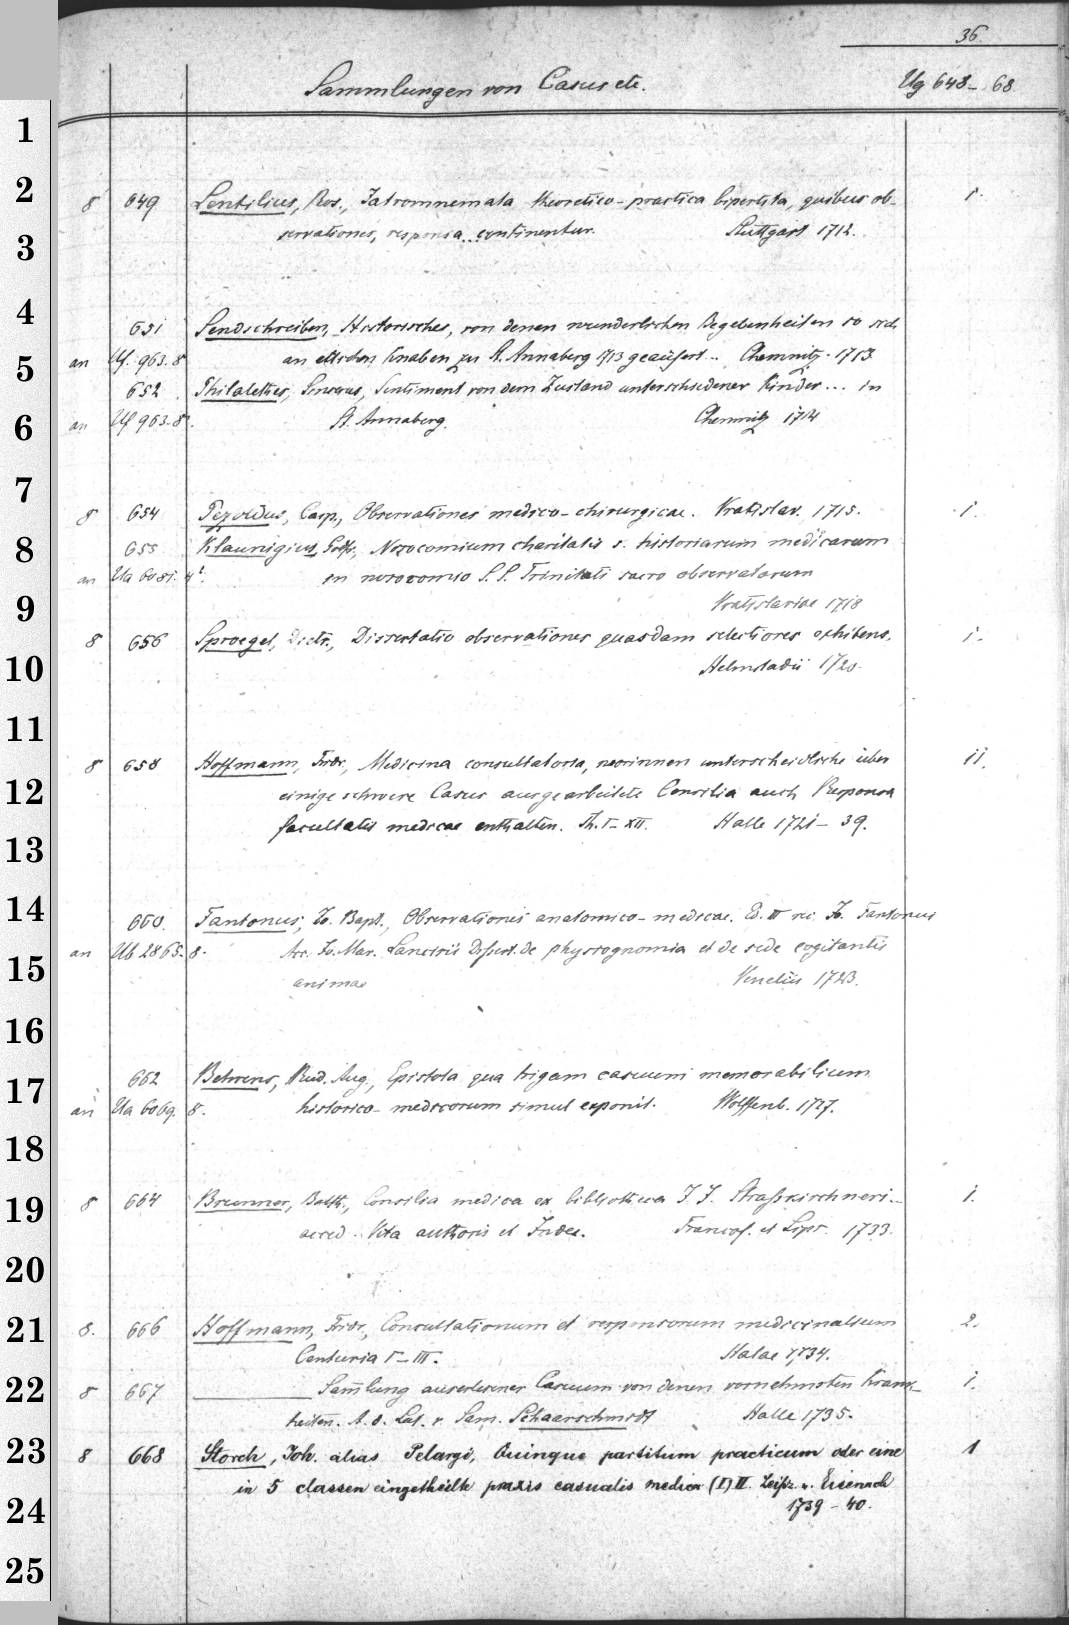 36.
Sammlungen von Casus etc. Ug 648-68
1
2
8 649 Lentilius, Ros., Iatromnemata theoretico-practica bipertita, quibus ob- 1.
servationes, responsa... continentur. Stuttgart 1712.
3
4
651 Sendschreiben, Historisches, von denen wunderlichen Begebenheiten so sich
an Uf. 963. 8 an etlichen Knaben zu St. Annaberg 1713 geäusert... Chemnitz. 1713
5
652 Philalethes, Sincerus, Sentiment von dem Zustand unterschiedener Kinder... in
an Uf 963. 8. St. Annaberg. Chemnitz 1714
6
7
8 654 Pezoldus, Casp., Observationes medico-chirurgicae. Vratislav. 1715. 1.
8
655 Klaunigius, Gottfr., Nosocomium charitatis s. historiarum medicarum
an Ua 6081. 4°. in nosocomio S. S. Trinitatis sacro observatarum
9
Vratislaviae 1718
8 656 Sproegel, Dietr., Dissertatio observationes quasdam selectiores exhibens. 1.
10
Helmstadii 1720.
11
8 658 Hoffmann, Fridr., Medicina consultatoria, worinnen unterschiedliche über 11.
12
einige schwere Casus ausgearbeitete Consilia auch Responsa
facultatis medicae enthalten. Th. I-XII. Halle 1721-39.
13
14
660. Fantonus, Jo. Bapt., Observationes anatomico-medicae. Ed. II rec. Jo. Fantonus
an Ub 2865. 8. Acc. Jo. Mar. Lancisii Dissert. de physiognomia et de sede cogitantis
15
animae Venetiis 1723.
16
662 Behrens, Rud. Aug., Epistola qua trigam casuum memorabilium
17
an Ua 6069. 8. historico-medicorum simul exponit. Wolffenb. 1727.
18
8 664 Brunner, Balth., Consilia medica ex bibliotheca J. J. Strasskirchneri. 1.
19
acced. Vita authoris et Index. Francof. et Lips. 1733.
20
8. 666 Hoffmann, Fridr., Consultationum et responsorum medicinalium 2.
21
Centuria I-III. Halae 1734.
8 667 ——— Samlung auserlesener Casuum von denen vornehmsten Krank- 1.
22
heiten. A. d. Lat. v. Sam. Schaarschmidt Halle 1735.
23
8 668 Storch, Joh. alias Pelargi, Quinque partitum practicum oder eine 1
in 5 classen eingetheilte praxis casualis medica (I) II. Leipz. u. Eisenach
24
1739-40.
25